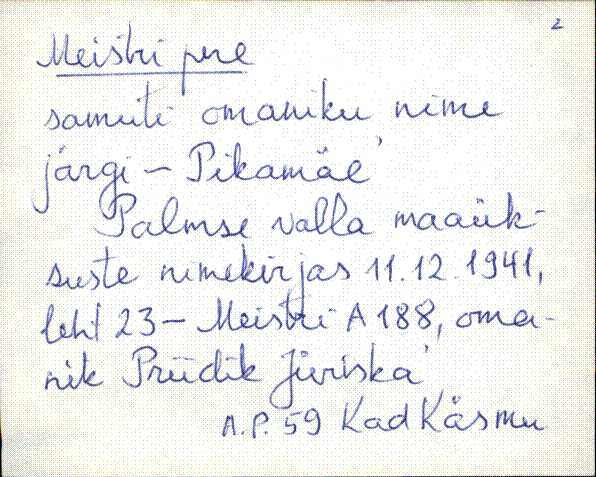 2
Meistri pere
samuti omaniku nime
järgi – Pikamäe'
Palmse valla maaük-
suste nimekirjas 11.12.1941,
leht 23 – Meistri A 188, oma-
nik Priidik Jüriska'
A.P. 59 Kad Käsmu